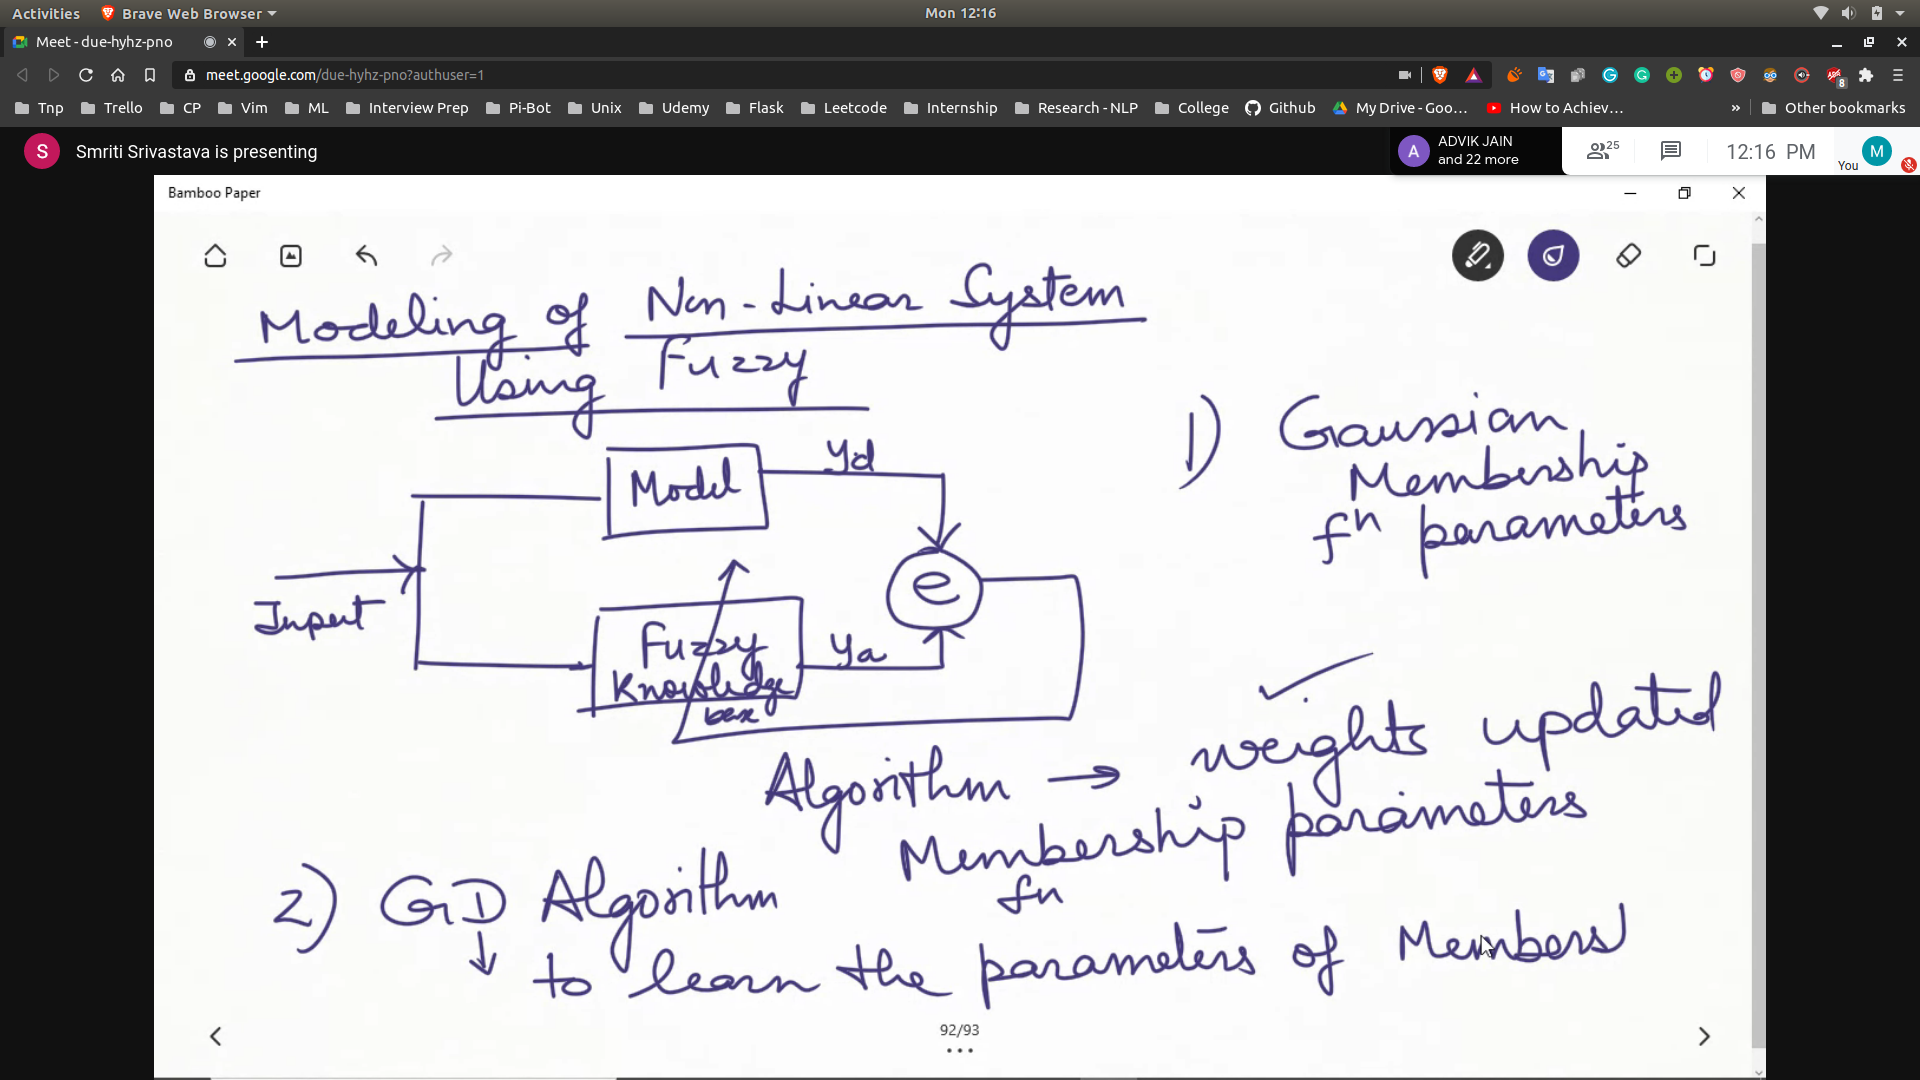 Activities
Brave Web Browser
Mon 12:16
Meet - due-hyhz-pno
meet.google.com/due-hyhz-pno?authuser=1
8
Tnp Trello CP Vim ML Interview Prep Pi-Bot Unix Udemy Flask Leetcode Internship Research - NLP College Github My Drive - Goo... How to Achiev... » Other bookmarks
S Smriti Srivastava is presenting
A ADVIK JAIN
and 22 more
25
12:16 PM
You M
Bamboo Paper
Modeling of Non-Linear System
Using Fuzzy
1) Gaussian
Membership
fn parameters
Model
Yd
e
Input
Fuzzy
Knowledge
Ya
Algorithm → weights updated
Membership parameters
fn
2) GD Algorithm
to learn the parameters of Members
92/93